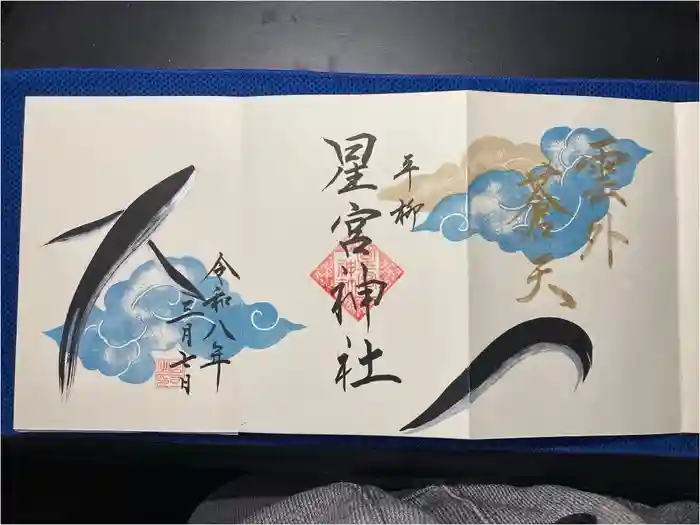 雲外
蒼天
平柳
星宮神社
令和八年
三月七日